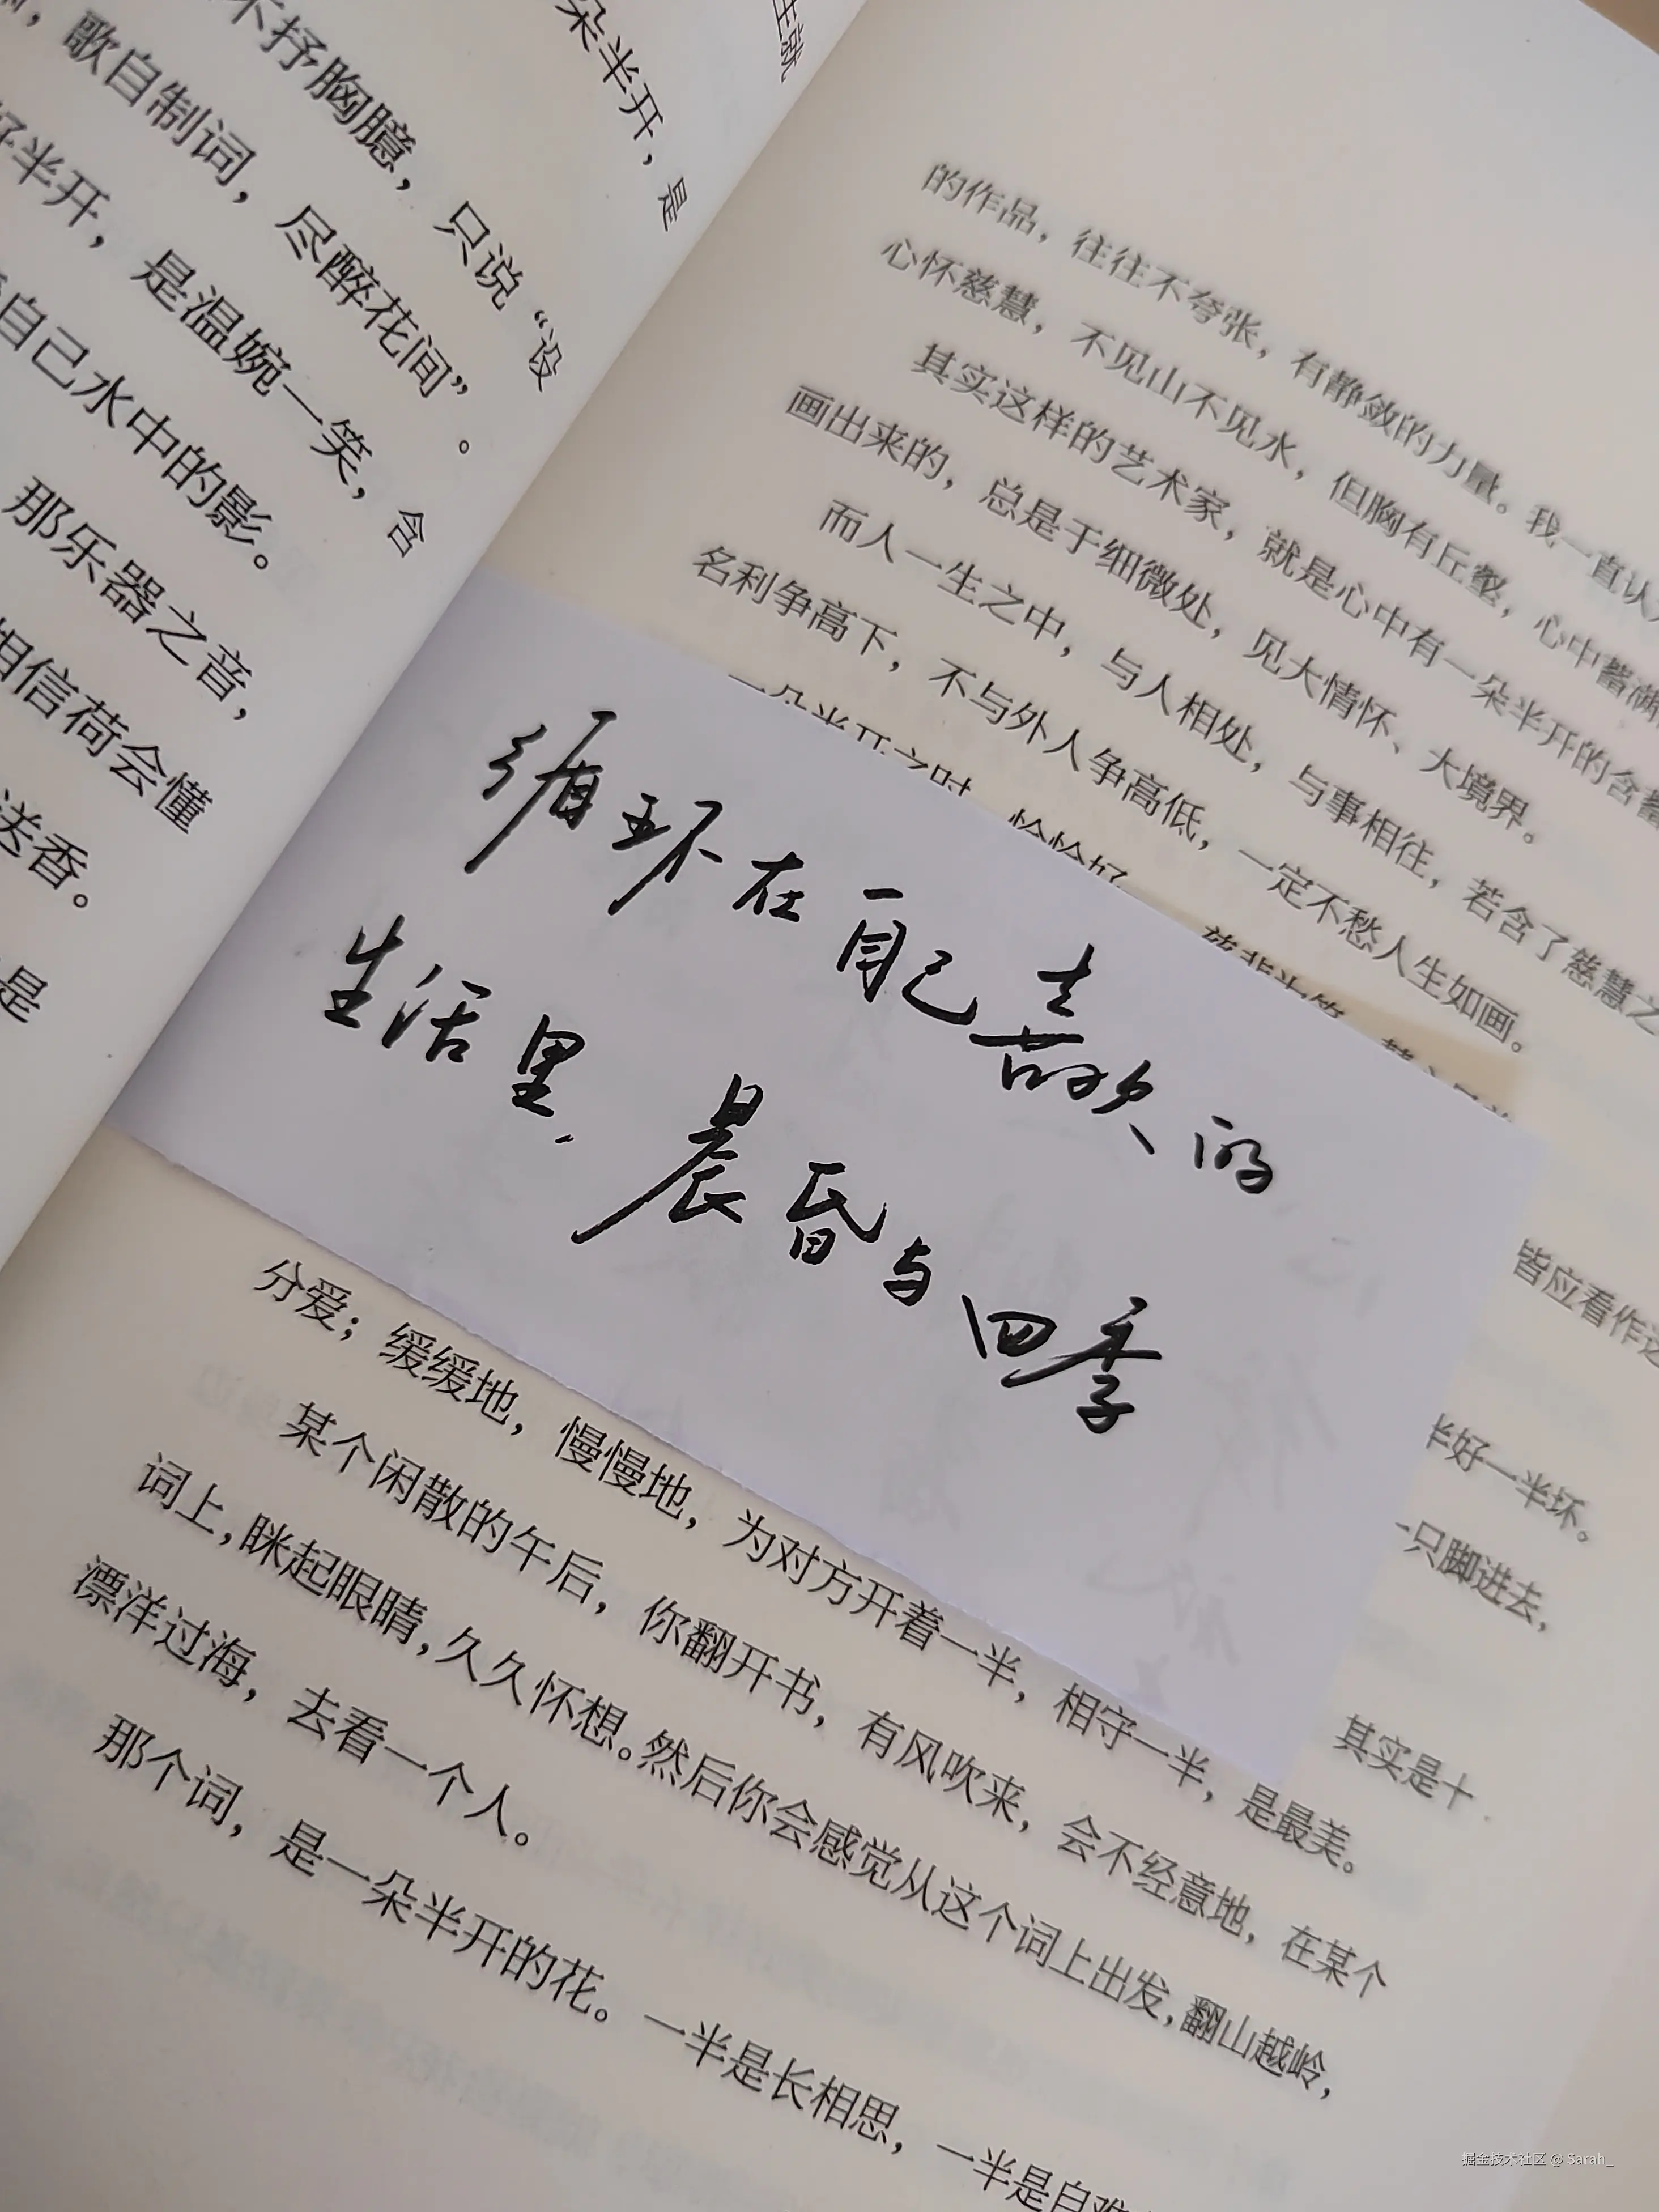 生就
朵半开，是
不抒胸臆，只说“设
歌自制词，尽醉花间”。
好半开，是温婉一笑，含
自己水中的影。
那乐器之音，
相信荷会懂
送香。
是
的作品，往往不夸张，有静敛的力量。我一直认
心怀慈慧，不见山不见水，但胸有丘壑，心中蓄湖
其实这样的艺术家，就是心中有一朵半开的含蓄
画出来的，总是于细微处，见大情怀、大境界。
而人一生之中，与人相处，与事相往，若含了慈慧之
名利争高下，不与外人争高低，一定不愁人生如画。
一朵半开之时，恰恰好
循环在自己喜欢的
生活里，晨昏与四季
皆应看作这
半好一半坏。
一只脚进去，
其实是十
分爱；缓缓地，慢慢地，为对方开着一半，相守一半，是最美。
某个闲散的午后，你翻开书，有风吹来，会不经意地，在某个
词上，眯起眼睛，久久怀想。然后你会感觉从这个词上出发，翻山越岭，
漂洋过海，去看一个人。
那个词，是一朵半开的花。一半是长相思，一半是自难
掘金技术社区 @ Sarah_